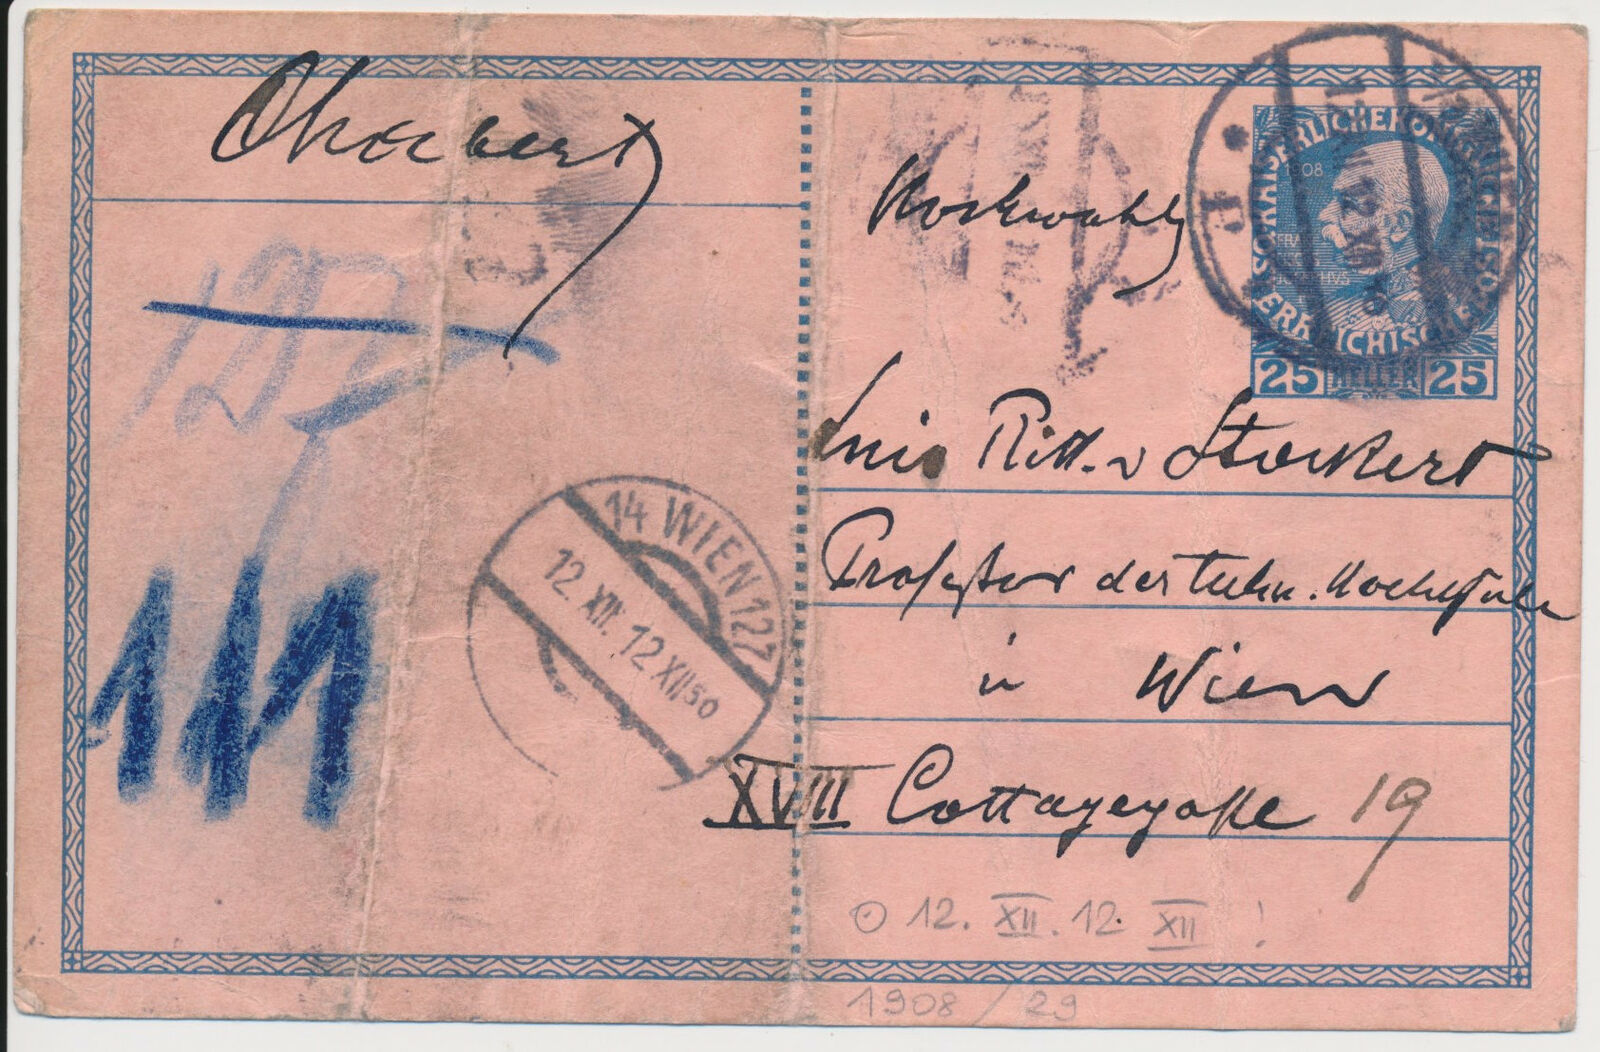 Hochwohlg
KAISERLICHE KÖNIGLICHE
1908
ÖSTERREICHISCHE
25 HELLER 25
Ritt. v Stockert
Professor der techn. Hochschule
in Wien
XVIII Cottagegasse 19
14 WIEN 122
12. XII. 12 XII 50
12. XII. 12 XII !
1908 / 29
127
111